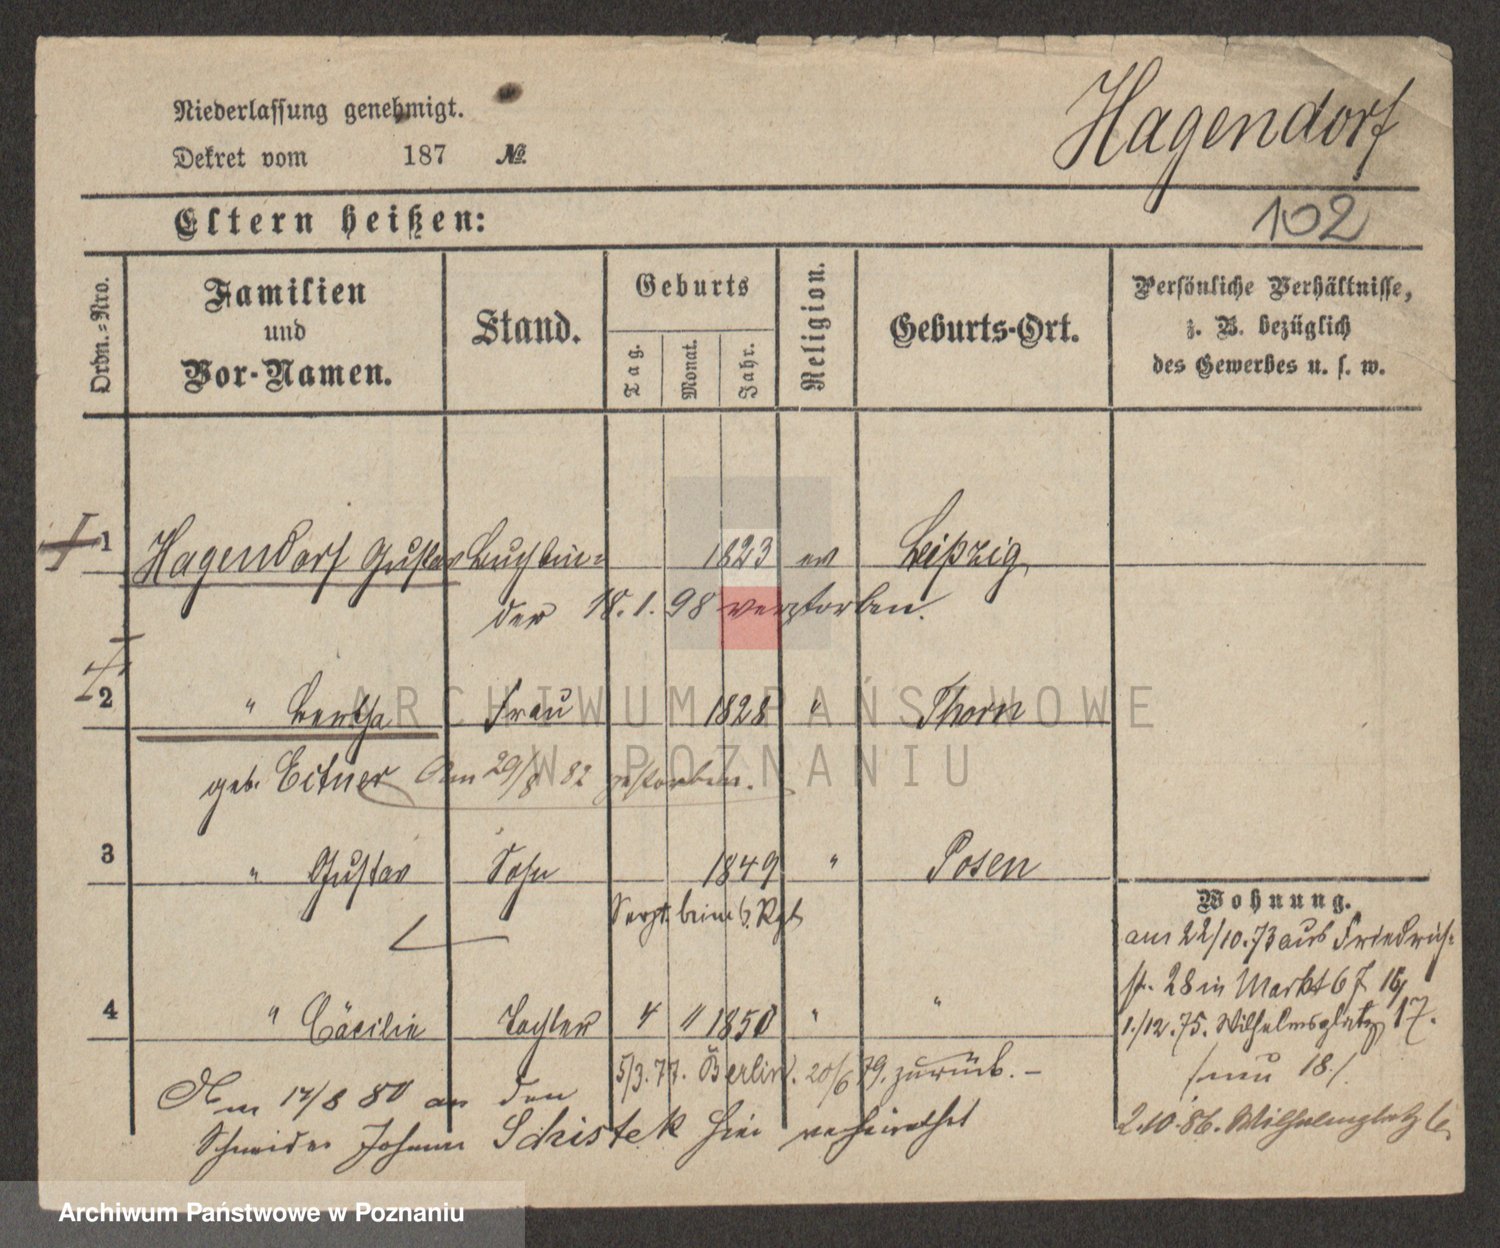 Niederlassung genehmigt.
Dekret vom 187 №
Hagendorf
102
Eltern heißen:
Ordn.-Nro.
Familien und Vor-Namen.
Stand.
Geburts
Tag.
Monat.
Jahr.
Religion.
Geburts-Ort.
Persönliche Verhältnisse,
z. B. bezüglich
des Gewerbes u. s. w.
1 Hagendorf Gustav Buchbin= 1823 ev Leipzig
der 18.1.98 verstorben.
2 " Bertha Frau 1828 " Thorn
geb. Eitner Am 29/8 82 gestorben.
3 " Gustav Sohn 1849 " Posen
Sergt. beim 6. Rgt
4 " Cäcilie Tochter 4 11 1850 " "
5/3.77. Berlin. 20/6 79. zurück. –
Am 17/8 80 an den
Schneider Johann Schistek hier verheirathet
Wohnung.
am 22/10.73 aus Friedrich=
str. 28 in Markt 67
1./12.75. Wilhelmsplatz 17.
/neu 18./
2.10.86. Wilhelmsplatz
ARCHIWUM PAŃSTWOWE
W POZNANIU
Archiwum Państwowe w Poznaniu